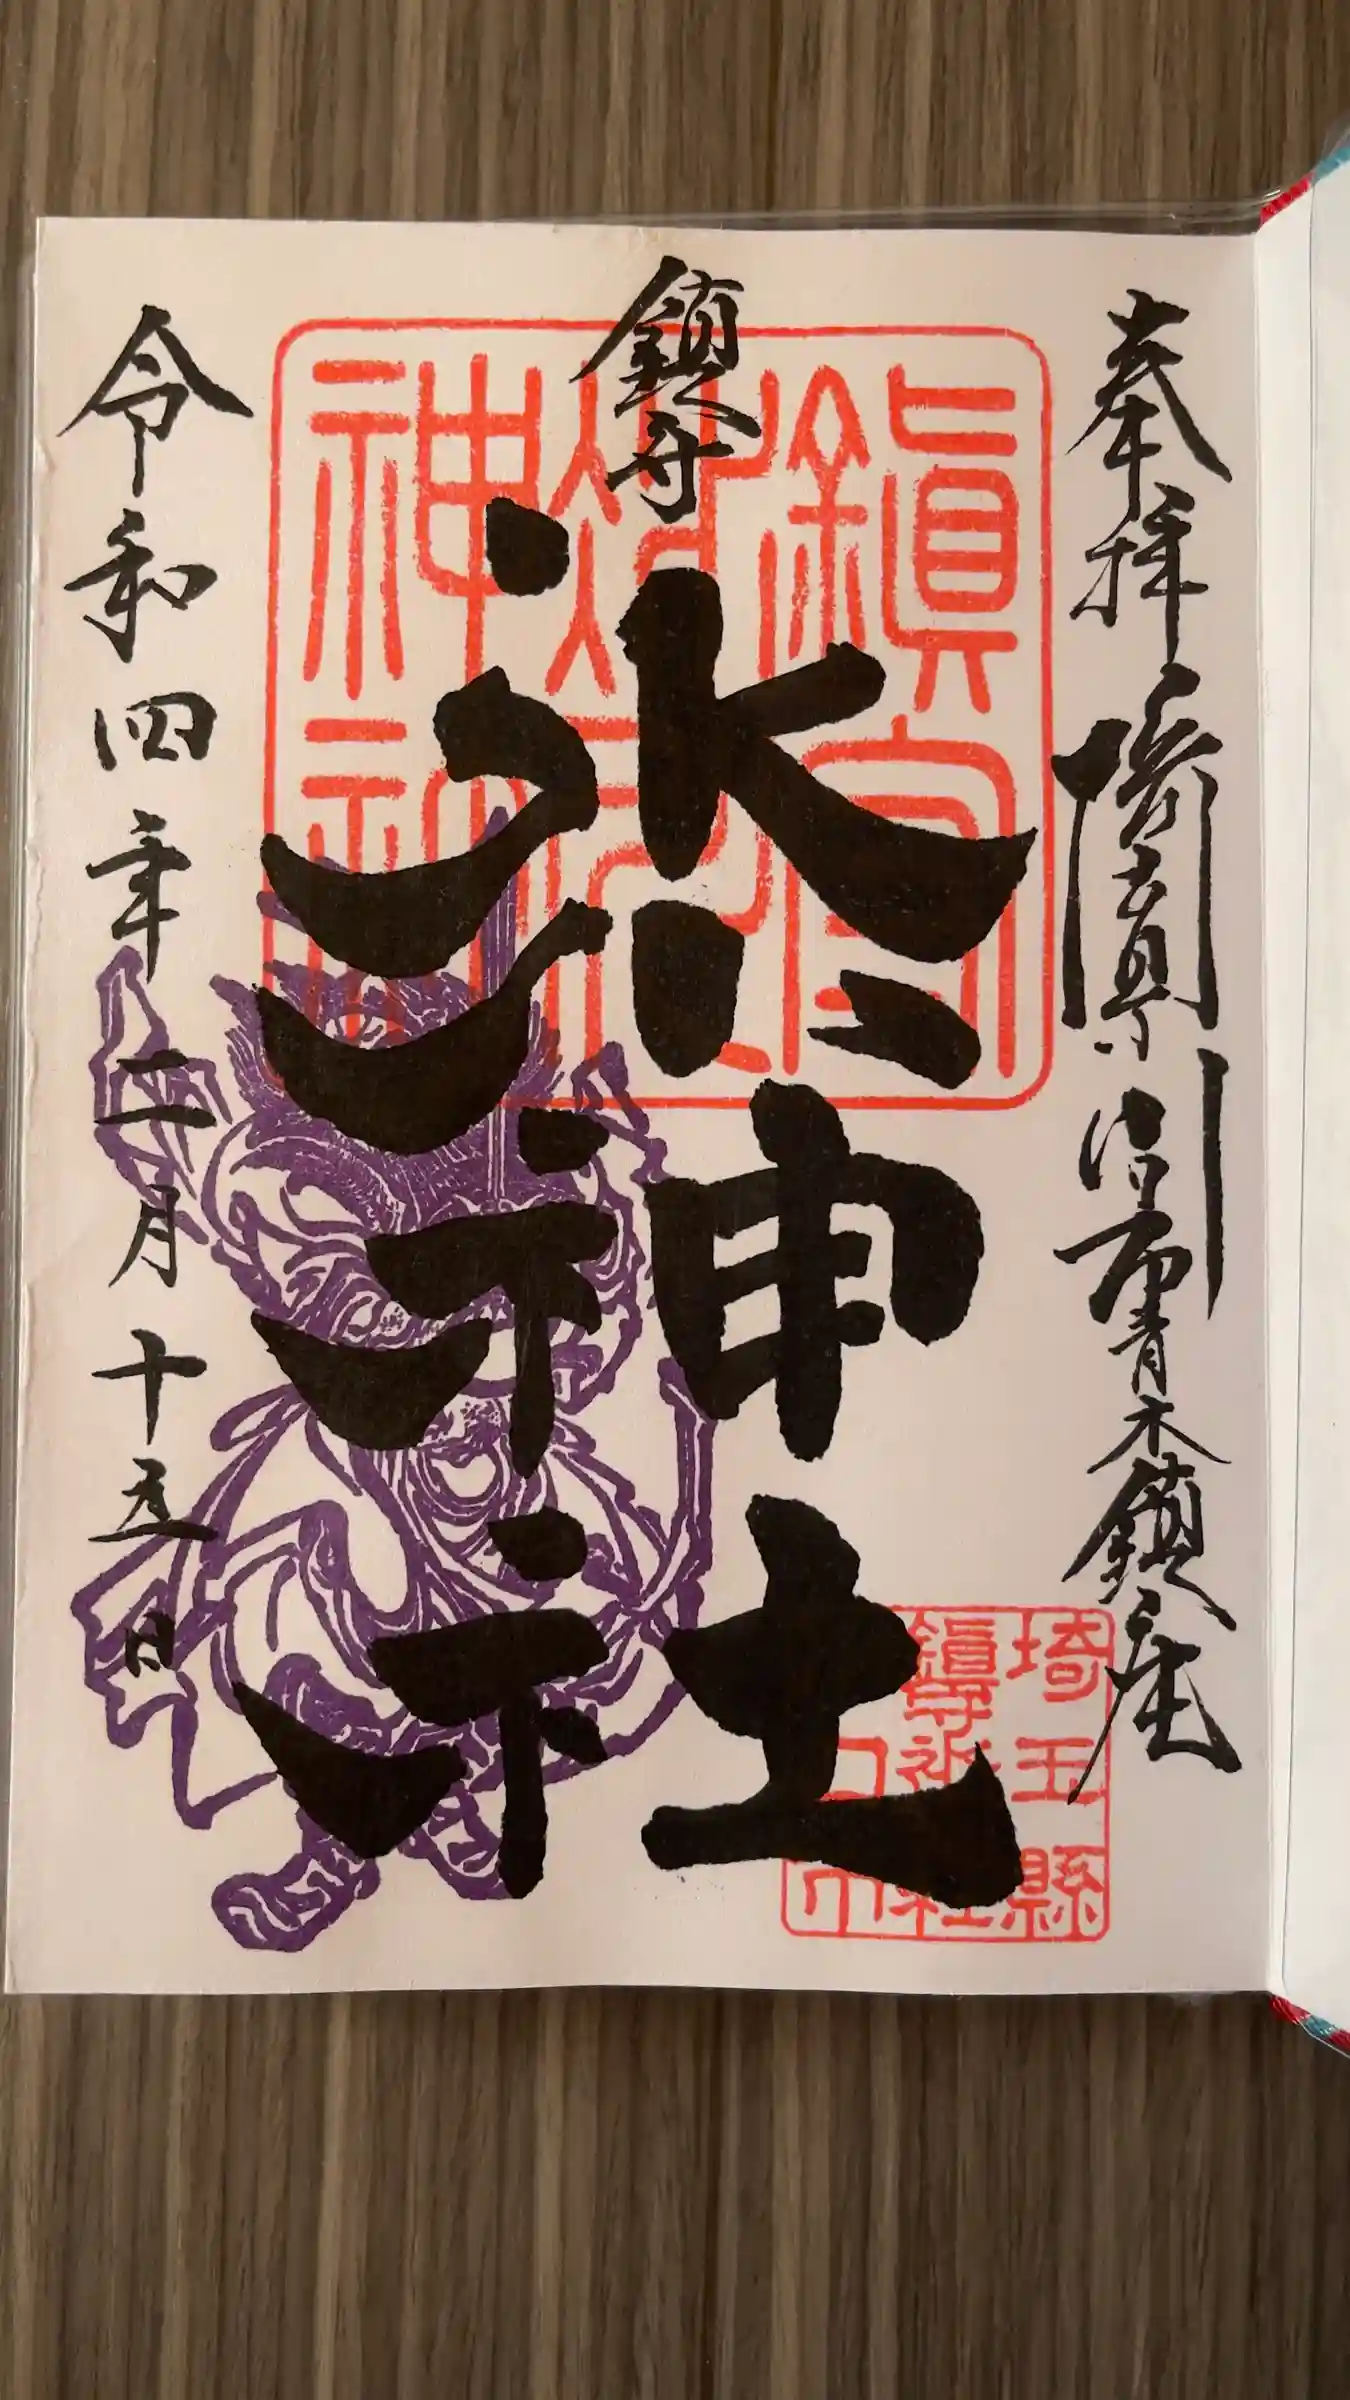 奉拝 埼玉県川口市青木鎮座
鎮守
氷川神社
令和四年二月十五日
埼玉縣
鎮守氷川神社